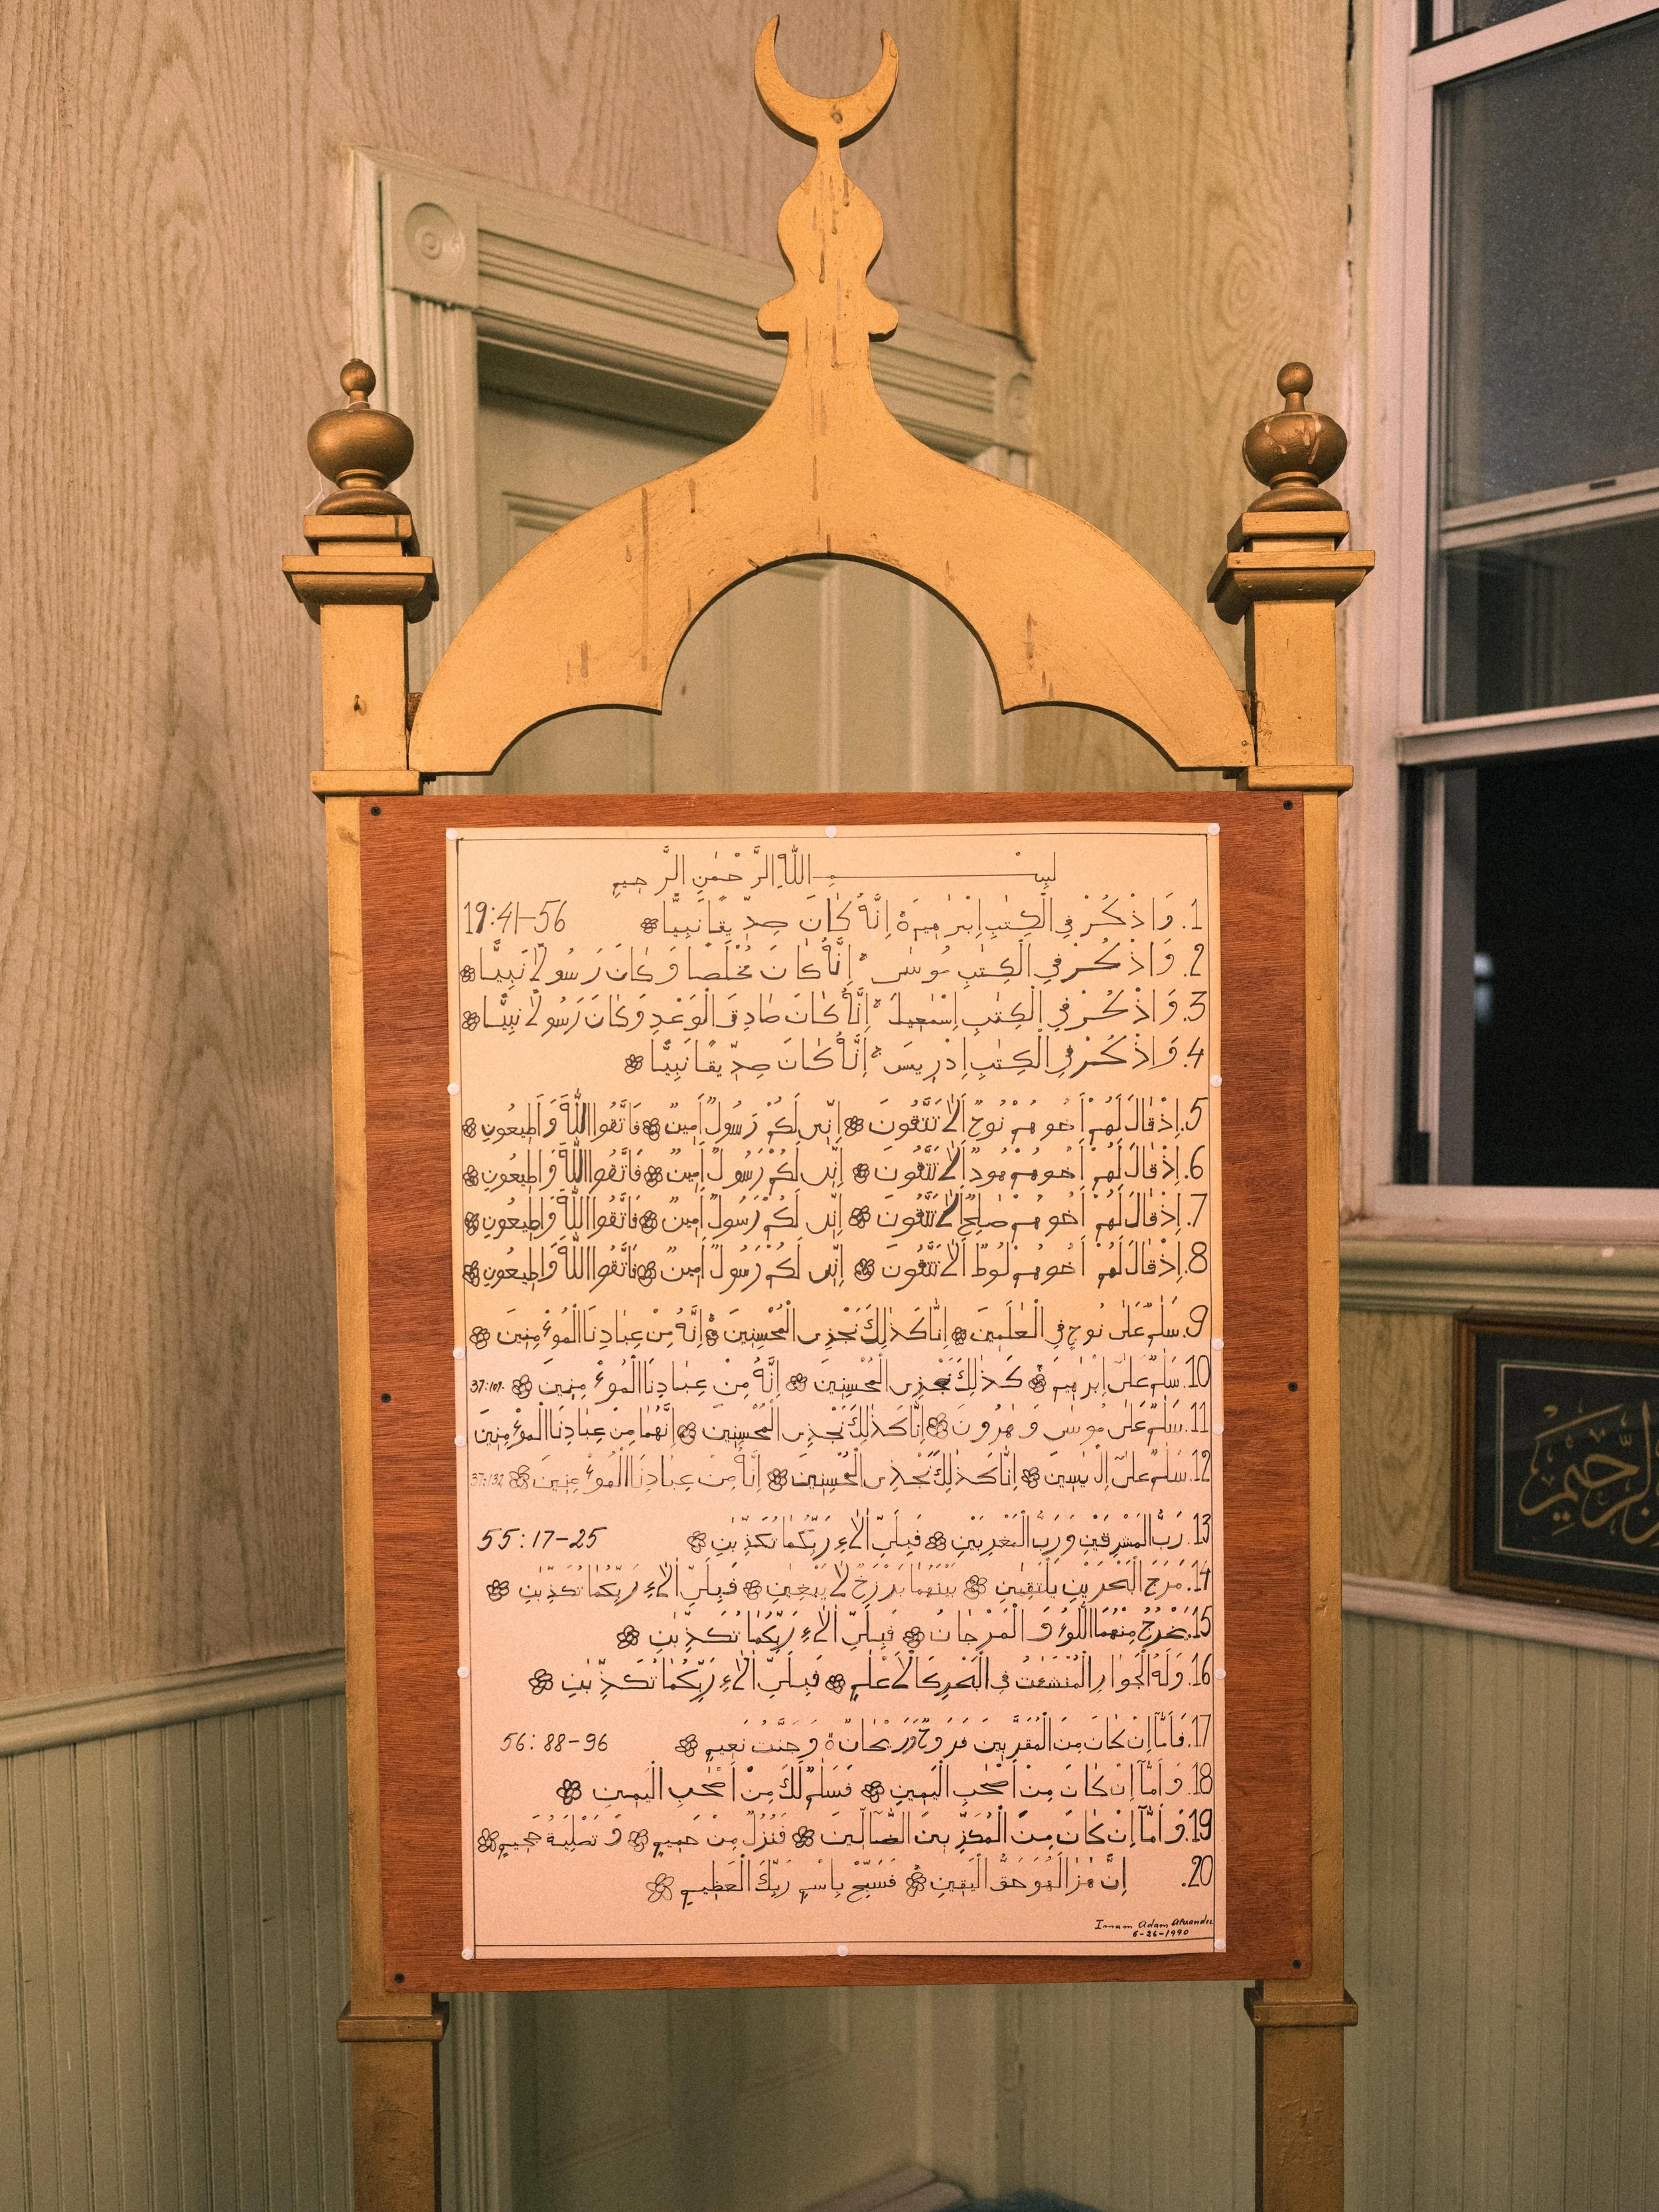 بِسْــــــــمِ اللهِ الرَّحْمٰنِ الرَّحِيمِ
1. وَاذْكُرْ فِي الْكِتٰبِ اِبْرٰهِيمَ ۚ اِنَّهُ كَانَ صِدِّيقًا نَبِيًّا 19:41-56
2. وَاذْكُرْ فِي الْكِتٰبِ مُوسٰى ۚ اِنَّهُ كَانَ مُخْلَصًا وَكَانَ رَسُولًا نَبِيًّا
3. وَاذْكُرْ فِي الْكِتٰبِ اِسْمٰعِيلَ ۚ اِنَّهُ كَانَ صَادِقَ الْوَعْدِ وَكَانَ رَسُولًا نَبِيًّا
4. وَاذْكُرْ فِي الْكِتٰبِ اِدْرِيسَ ۚ اِنَّهُ كَانَ صِدِّيقًا نَبِيًّا
5. اِذْ قَالَ لَهُمْ اَخُوهُمْ نُوحٌ اَلَا تَتَّقُونَ اِنِّى لَكُمْ رَسُولٌ اَمِينٌ فَاتَّقُوا اللهَ وَاَطِيعُونِ
6. اِذْ قَالَ لَهُمْ اَخُوهُمْ هُودٌ اَلَا تَتَّقُونَ اِنِّى لَكُمْ رَسُولٌ اَمِينٌ فَاتَّقُوا اللهَ وَاَطِيعُونِ
7. اِذْ قَالَ لَهُمْ اَخُوهُمْ صٰلِحٌ اَلَا تَتَّقُونَ اِنِّى لَكُمْ رَسُولٌ اَمِينٌ فَاتَّقُوا اللهَ وَاَطِيعُونِ
8. اِذْ قَالَ لَهُمْ اَخُوهُمْ لُوطٌ اَلَا تَتَّقُونَ اِنِّى لَكُمْ رَسُولٌ اَمِينٌ فَاتَّقُوا اللهَ وَاَطِيعُونِ
9. سَلٰمٌ عَلٰى نُوحٍ فِي الْعٰلَمِينَ اِنَّا كَذٰلِكَ نَجْزِى الْمُحْسِنِينَ اِنَّهُ مِنْ عِبَادِنَا الْمُوْءمِنِينَ
10. سَلٰمٌ عَلٰى اِبْرٰهِيمَ كَذٰلِكَ نَجْزِى الْمُحْسِنِينَ اِنَّهُ مِنْ عِبَادِنَا الْمُوْءمِنِينَ 37:109-
11. سَلٰمٌ عَلٰى مُوسٰى وَهٰرُونَ اِنَّا كَذٰلِكَ نَجْزِى الْمُحْسِنِينَ اِنَّهُمَا مِنْ عِبَادِنَا الْمُوْءمِنِينَ
12. سَلٰمٌ عَلٰى اِلْ يَاسِينَ اِنَّا كَذٰلِكَ نَجْزِى الْمُحْسِنِينَ اِنَّهُ مِنْ عِبَادِنَا الْمُوْءمِنِينَ 37:132
13. رَبُّ الْمَشْرِقَيْنِ وَرَبُّ الْمَغْرِبَيْنِ فَبِاَىِّ اٰلَاءِ رَبِّكُمَا تُكَذِّبٰنِ 55:17-25
14. مَرَجَ الْبَحْرَيْنِ يَلْتَقِيٰنِ بَيْنَهُمَا بَرْزَخٌ لَا يَبْغِيٰنِ فَبِاَىِّ اٰلَاءِ رَبِّكُمَا تُكَذِّبٰنِ
15. يَخْرُجُ مِنْهُمَا اللُّوْءلُوءُ وَ الْمَرْجَانُ فَبِاَىِّ اٰلَاءِ رَبِّكُمَا تُكَذِّبٰنِ
16. وَلَهُ الْجَوَارِ الْمُنْشَئٰتُ فِي الْبَحْرِ كَالْاَعْلٰمِ فَبِاَىِّ اٰلَاءِ رَبِّكُمَا تُكَذِّبٰنِ
17. فَاَمَّا اِنْ كَانَ مِنَ الْمُقَرَّبِينَ فَرَوْحٌ وَرَيْحَانٌ ۙ وَجَنَّتُ نَعِيمٍ 56:88-96
18. وَاَمَّا اِنْ كَانَ مِنْ اَصْحٰبِ الْيَمِينِ فَسَلٰمٌ لَكَ مِنْ اَصْحٰبِ الْيَمِينِ
19. وَاَمَّا اِنْ كَانَ مِنَ الْمُكَذِّبِينَ الضَّالِّينَ فَنُزُلٌ مِنْ حَمِيمٍ وَتَصْلِيَةُ جَحِيمٍ
20. اِنَّ هٰذَا لَهُوَ حَقُّ الْيَقِينِ فَسَبِّحْ بِاسْمِ رَبِّكَ الْعَظِيمِ
Imam Adam Alexander
6-26-1990
الرَّحِيمِ